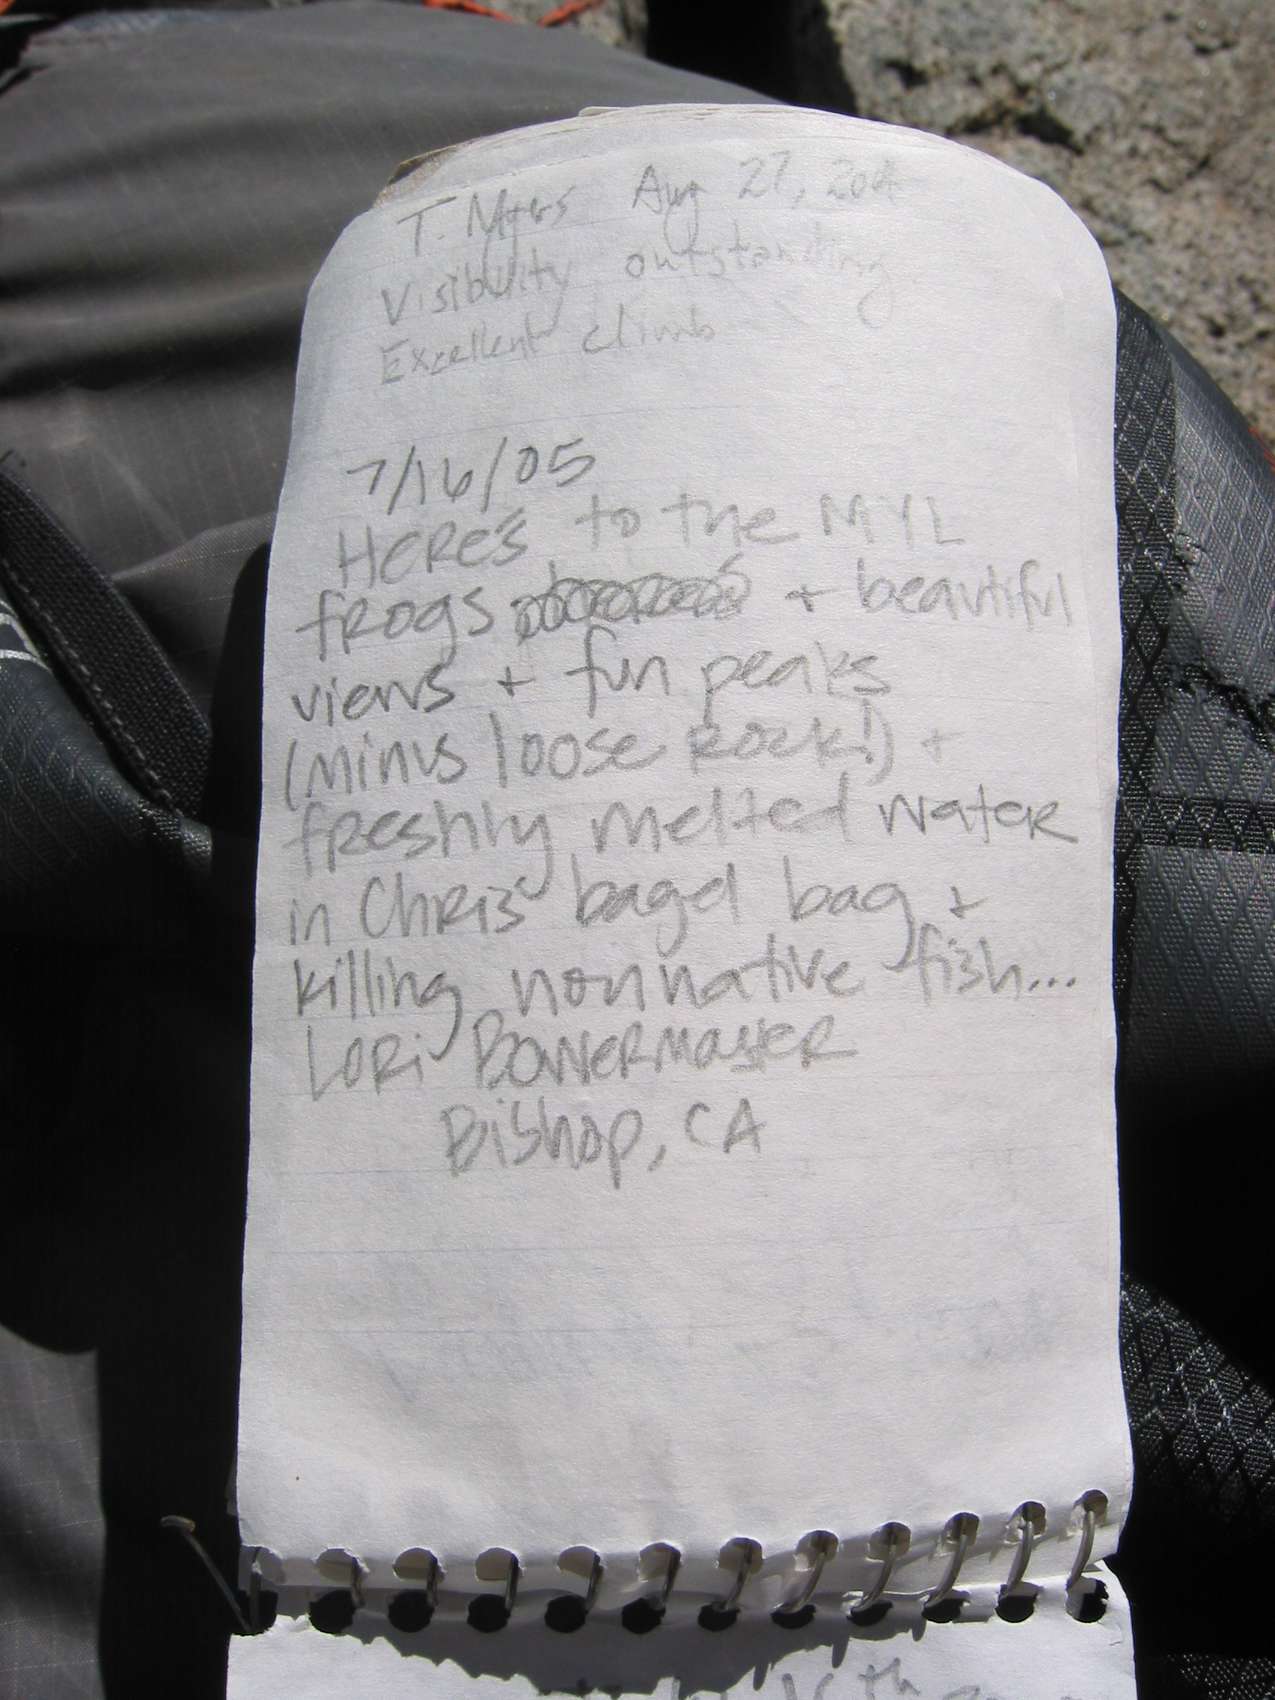 T. Myers Aug 27, 2004
Visibility outstanding
Excellent climb
7/16/05
HERE'S to the MYL
frogs + beautiful
views + fun peaks
(minus loose rock!) +
freshly melted water
in Chris' bagel bag +
killing nonnative fish...
Lori Bowermaster
Bishop, CA
16th